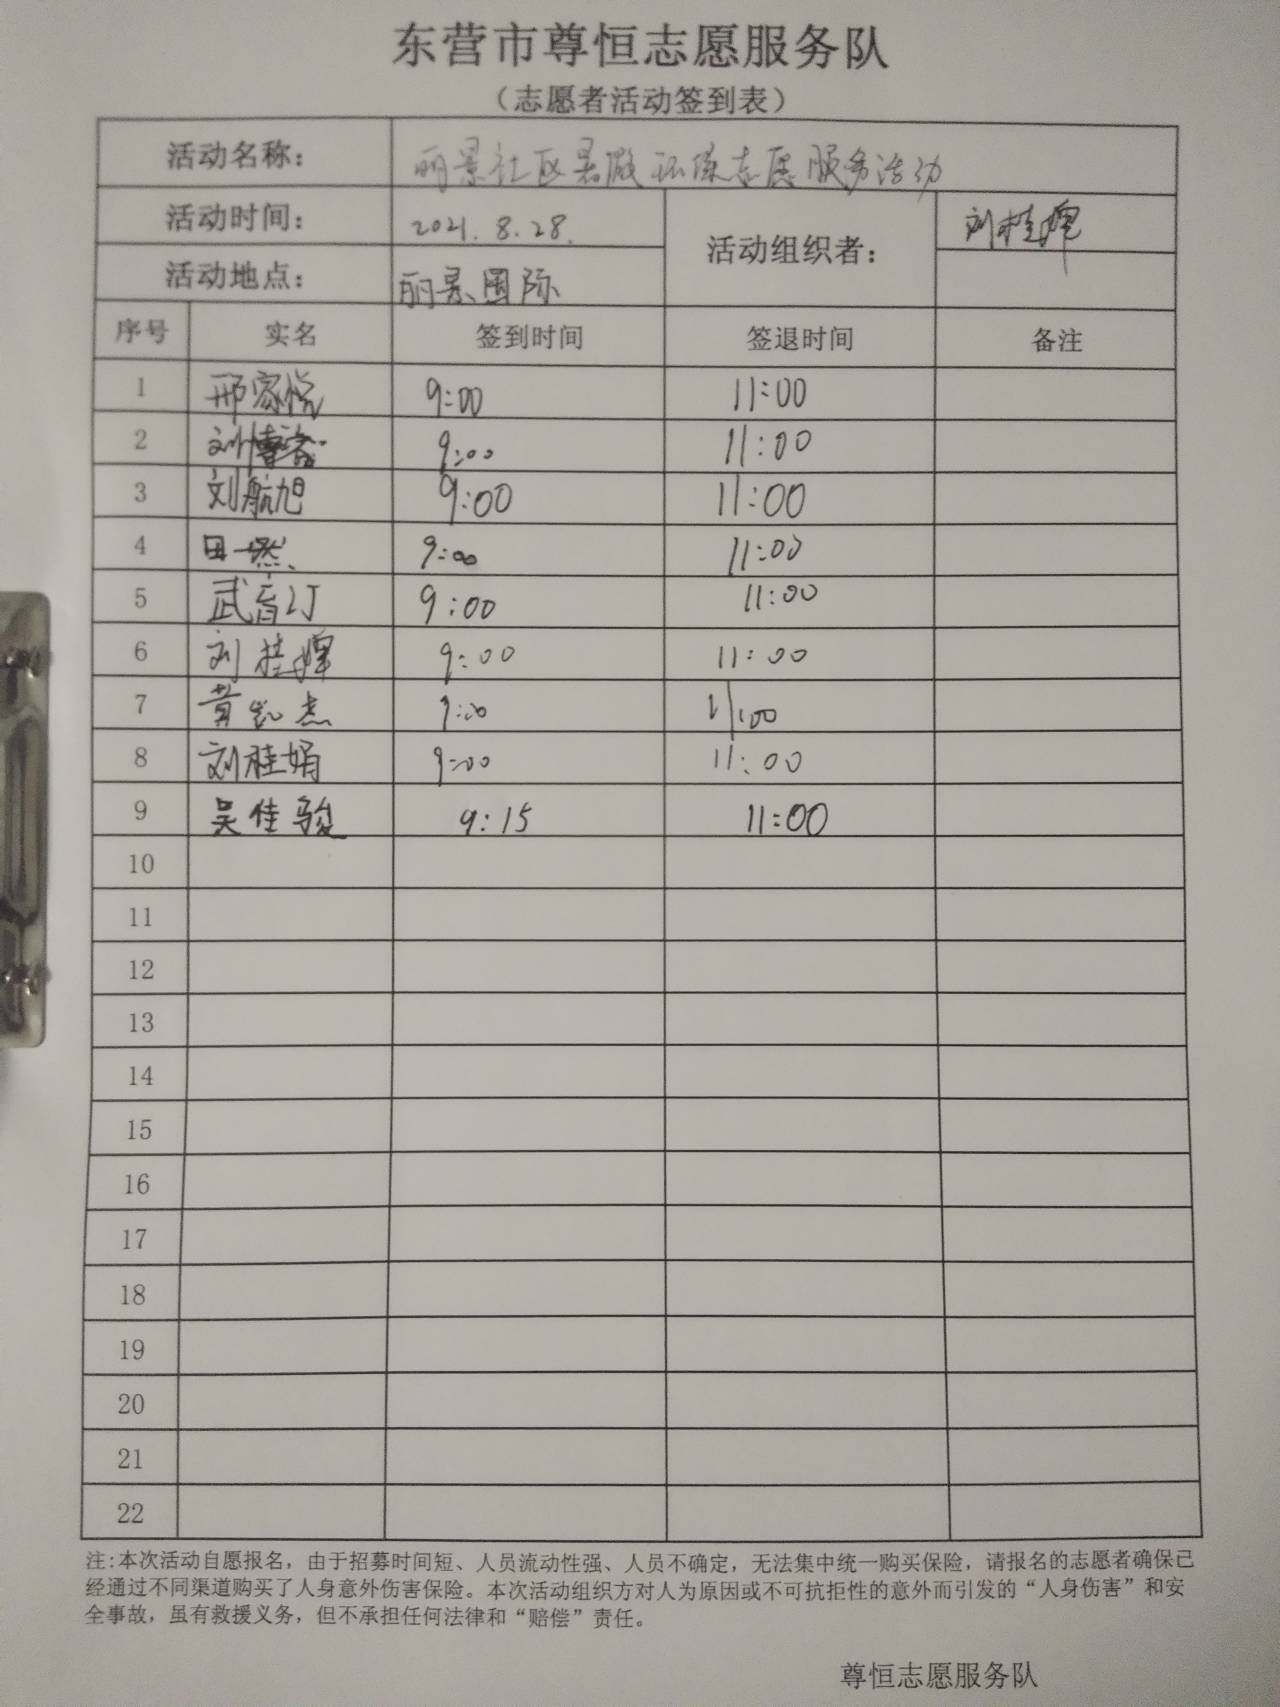 东营市尊恒志愿服务队
（志愿者活动签到表）
活动名称： 丽景社区暑假环保志愿服务活动
活动时间： 2021.8.28. 活动组织者： 刘桂
活动地点： 丽景国际
序号 实名 签到时间 签退时间 备注
1 邢家悦 9:00 11:00
2 刘博 9:00 11:00
3 刘航旭 9:00 11:00
4 田一 9:00 11:00
5 武 9:00 11:00
6 刘桂 9:00 11:00
7 黄凯杰 9:00 11:00
8 刘桂娟 9:00 11:00
9 吴佳骏 9:15 11:00
10
11
12
13
14
15
16
17
18
19
20
21
22
注:本次活动自愿报名，由于招募时间短、人员流动性强、人员不确定，无法集中统一购买保险，请报名的志愿者确保已
经通过不同渠道购买了人身意外伤害保险。本次活动组织方对人为原因或不可抗拒性的意外而引发的“人身伤害”和安
全事故，虽有救援义务，但不承担任何法律和“赔偿”责任。
尊恒志愿服务队